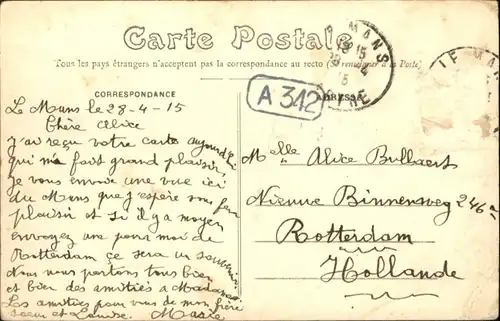 Carte Postale
Tous les pays étrangers n'acceptent pas la correspondance au recto (Se renseigner à la Poste)
CORRESPONDANCE
A 312
Le Mans le 28-4-15
Chère Alice
j'ai reçu votre carte aujourd'hui
qui m'a fait grand plaisir,
je vous envoie une vue ici
du Mans que j'espère vous fera
plaisir et si il y a moyen
envoyez une pour moi de
Rotterdam ça sera un souvenir
Nous nous portons tous bien
et bien des amitiés a
Les amitiés pour vous de mon frère
soeur et Louise. Marie
MANS
Melle Alice Bullaert
Nieuwe Binnenweg 246a
Rotterdam
Hollande